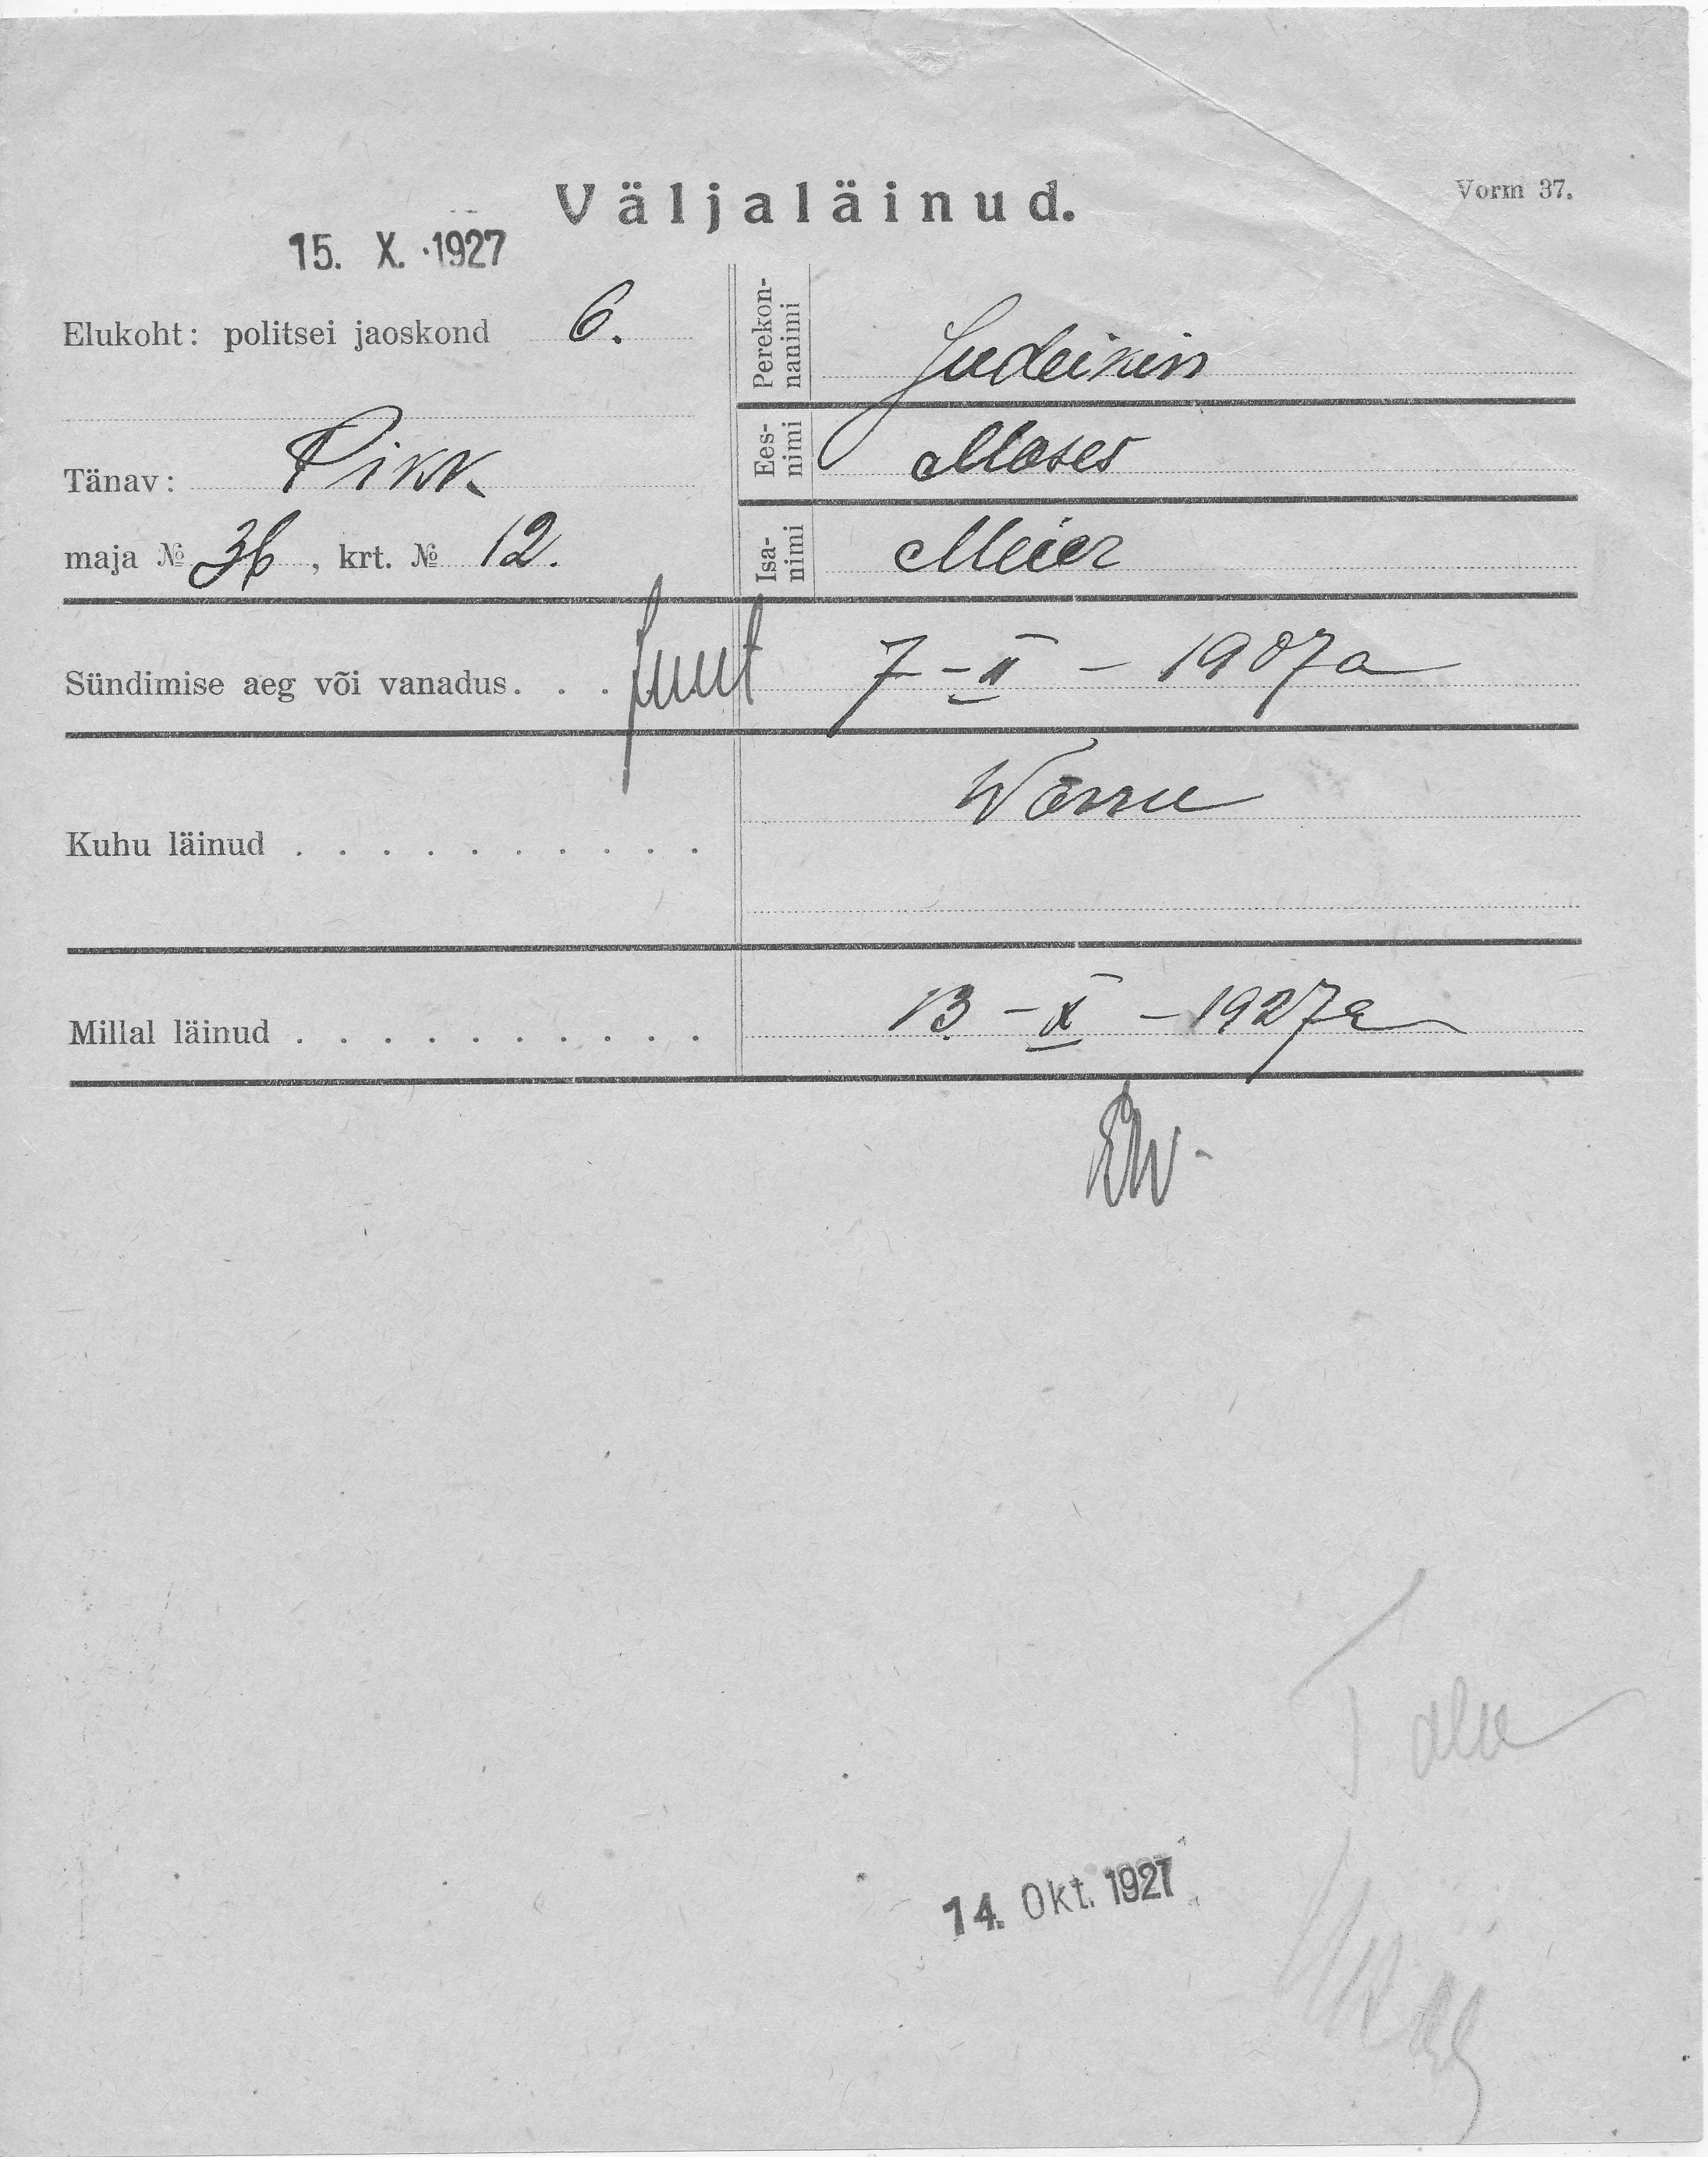 Väljaläinud.
Vorm 37.
15. X. 1927
Elukoht: politsei jaoskond 6.
Tänav: Pikk
maja № 36, krt. № 12.
Perekon-
nanimi
Judeikin
Ees-
nimi
Moses
Isa-
nimi
Meier
Sündimise aeg või vanadus. . . 7-II-1907a
juut
Kuhu läinud . . . . . . . . . . Wõrru
Millal läinud . . . . . . . . . . 13-X-1927a
14. Okt. 1927